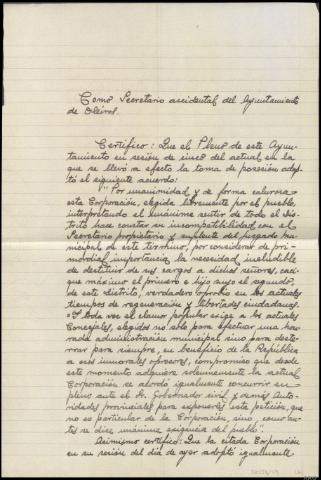 Como Secretario accidental del Ayuntamiento
de Oleiros.
Certifico: Que el Pleno de este Ayun-
tamiento en sesión de cinco del actual, en la
que se llevó a efecto la toma de posesión adop-
tó el siguiente acuerdo:
"Por unanimidad y de forma calurosa
esta Corporación, elegida libremente por el pueblo,
interpretando el unánime sentir de todo el dis-
trito hace constar su incompatibilidad, con el
Secretario propietario y suplente del juzgado mu-
nicipal de este término, por considerar de pri-
mordial importancia la necesidad ineludible
de destituir de sus cargos a dichos señores, caci-
que máximo el primero e hijo suyo el segundo,
de este distrito, verdadero oprobio en los actuales
tiempos de regeneración y libertades ciudadanas.
toda voz el clamor popular exige a los actuales
Concejales, elegidos no solo para efectuar una hon-
rada administración municipal sino para deste-
rrar para siempre, en beneficio de la República
a esos inmorales opresores, compromiso que desde
este momento adquiere solemnemente la actual
Corporación se acordó igualmente concurrir en
pleno ante el Sr. Gobernador civil y demás Auto-
ridades provinciales para exponerles esta petición, que
no es particular de la Corporación, sino, como an-
tes se dice unánime exigencia del pueblo".
Asimismo certifico: Que la citada Corporación
en su sesión del día de ayer adoptó igualmente